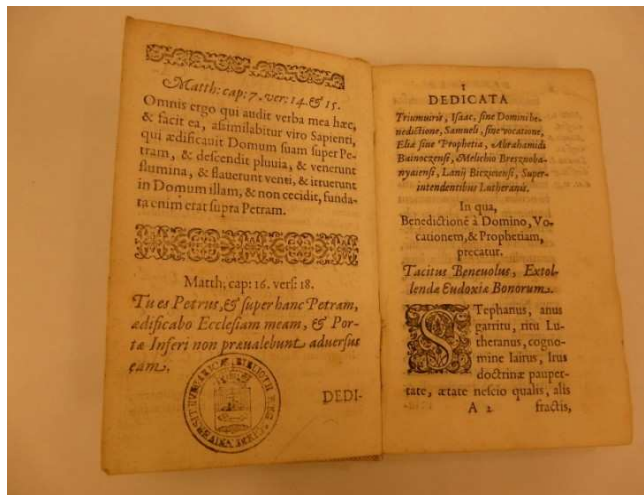 Matth: cap: 7. ver: 14. & 15.
Omnis ergo qui audit verba mea hæc,
& facit ea, assimilabitur viro Sapienti,
qui ædificauit Domum suam super Pe-
tram, & descendit pluuia, & venerunt
flumina, & flauerunt venti, & irruerunt
in Domum illam, & non cecidit, funda-
ta enim erat supra Petram.
Matth; cap: 16. vers: 18.
Tu es Petrus, & super hanc Petram,
ædificabo Ecclesiam meam, & Por-
tæ Inferi non præualebunt aduersus
eam.
DEDI-
1
DEDICATA
Triumuiris, Isaac, sine Domini be-
nedictione, Samueli, sine vocatione,
Eliæ sine Prophetia, Abrahamidi
Lanij Super-
intendentibus Lutheranis.
In qua,
Benedictionē à Domino, Vo-
cationem, & Prophetiam,
precatur.
Tacitus Beneuolus, Extol-
lendæ Eudoxiæ Bonorum.
STephanus, anus
garritu, ritu Lu-
theranus, cogno-
mine Irus
doctrinæ pauper-
tate, ætate nescio qualis, alis
A 2 fractis,